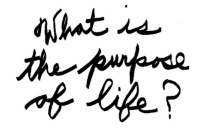 What is
the purpose
of life?